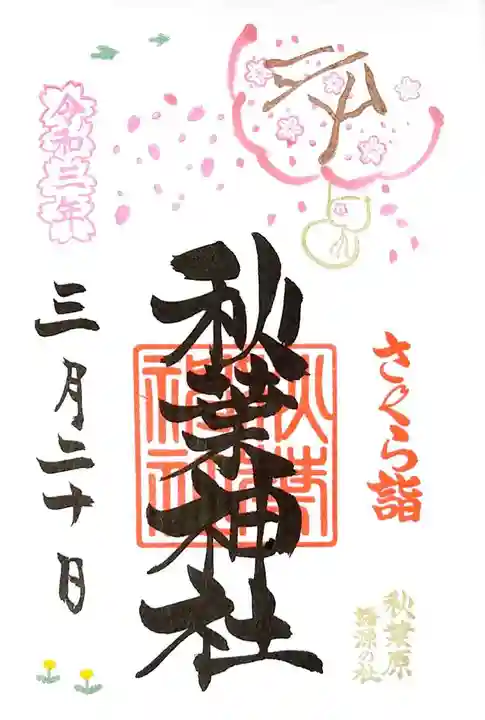 さくら詣
秋葉原
語源の社
秋葉神社
秋葉神社
令和三年
三月二十日